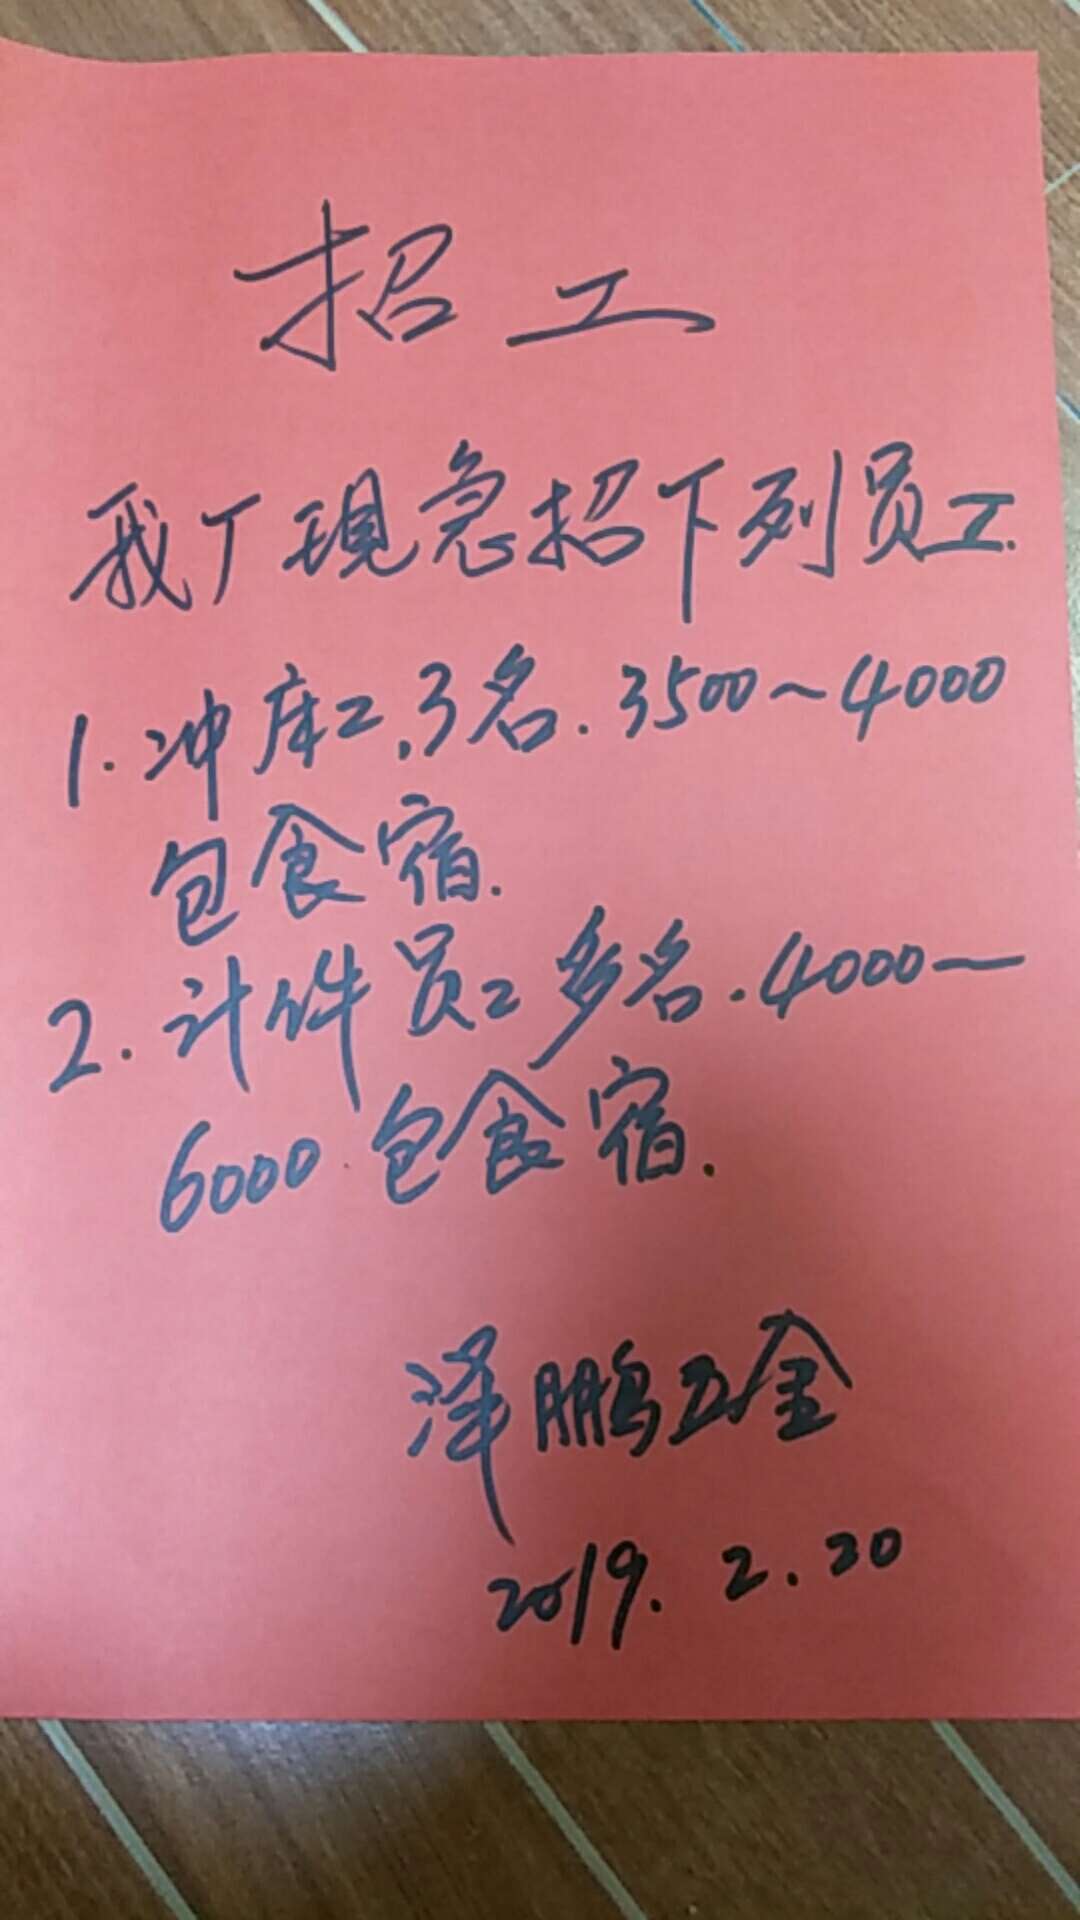 招工
我厂现急招下列员工.
1.冲床工,3名.3500~4000
包食宿.
2.计件员工多名.4000—
6000.包食宿.
泽鹏五金
2019.2.20